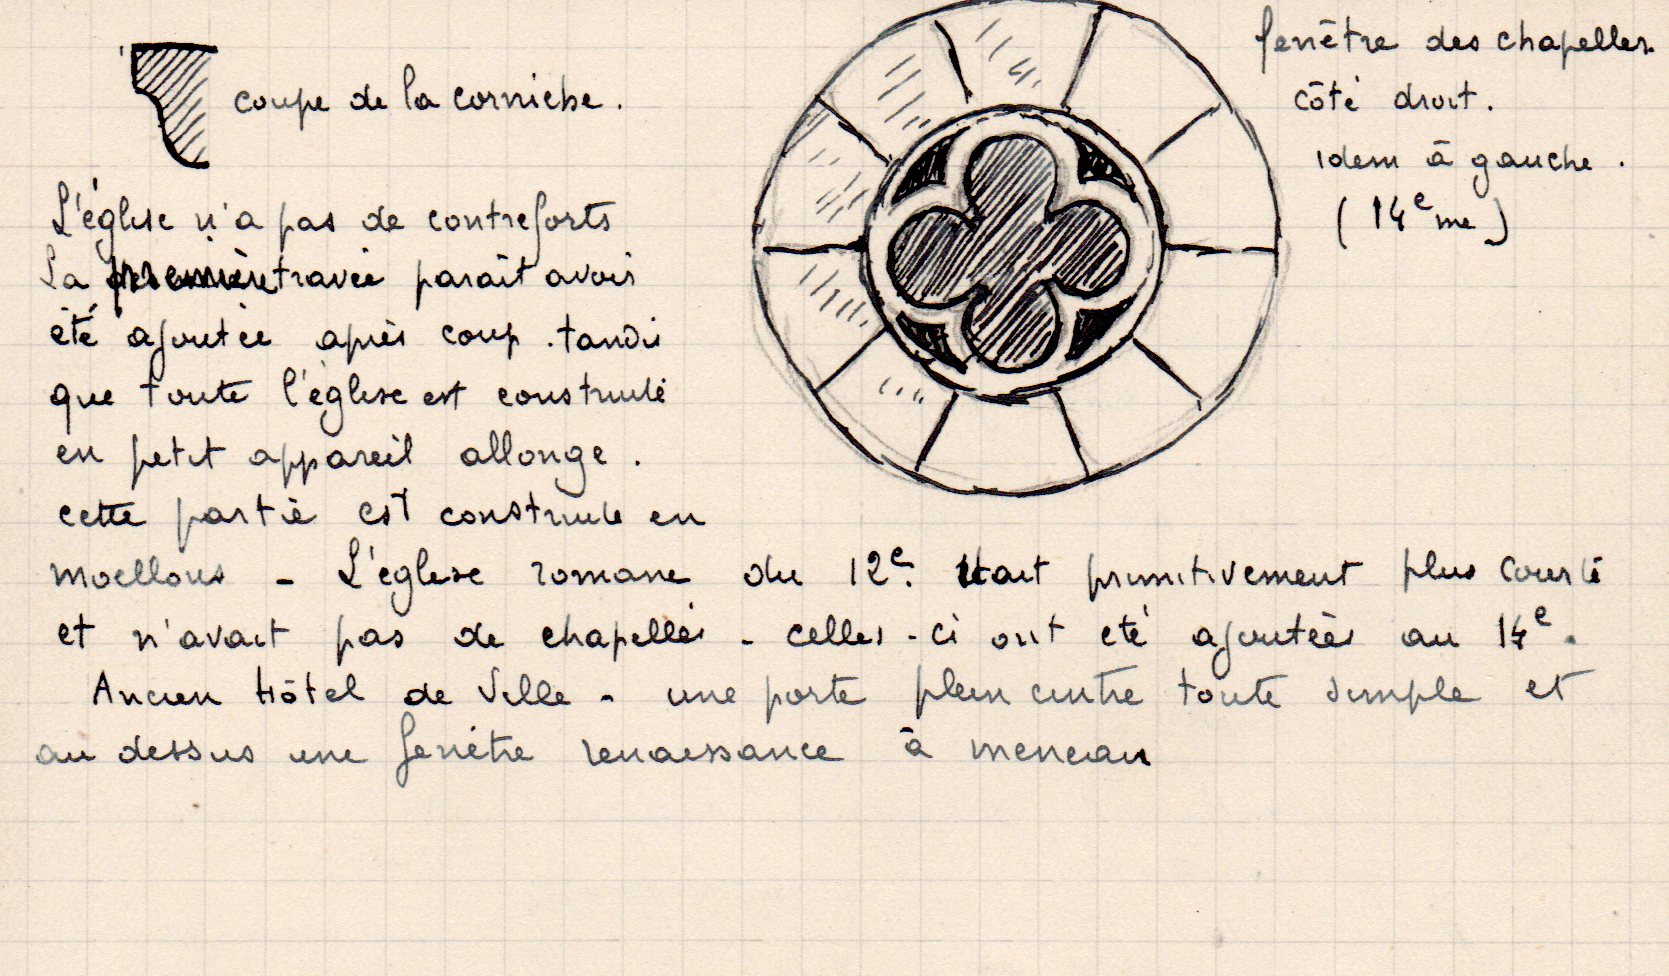 coupe de la corniche.
fenêtre des chapelles
côté droit.
idem à gauche.
(14eme)
L'église n'a pas de contreforts
La première travée parait avoir
été ajoutée après coup. tandis
que toute l'église est construite
en petit appareil allongé.
cette partie est construite en
moellons - L'église romane du 12e. était primitivement plus courte
et n'avait pas de chapelles - celles-ci ont été ajoutées au 14e.
Ancien Hôtel de Ville - une porte plein cintre toute simple et
au dessus une fenêtre renaissance à meneau